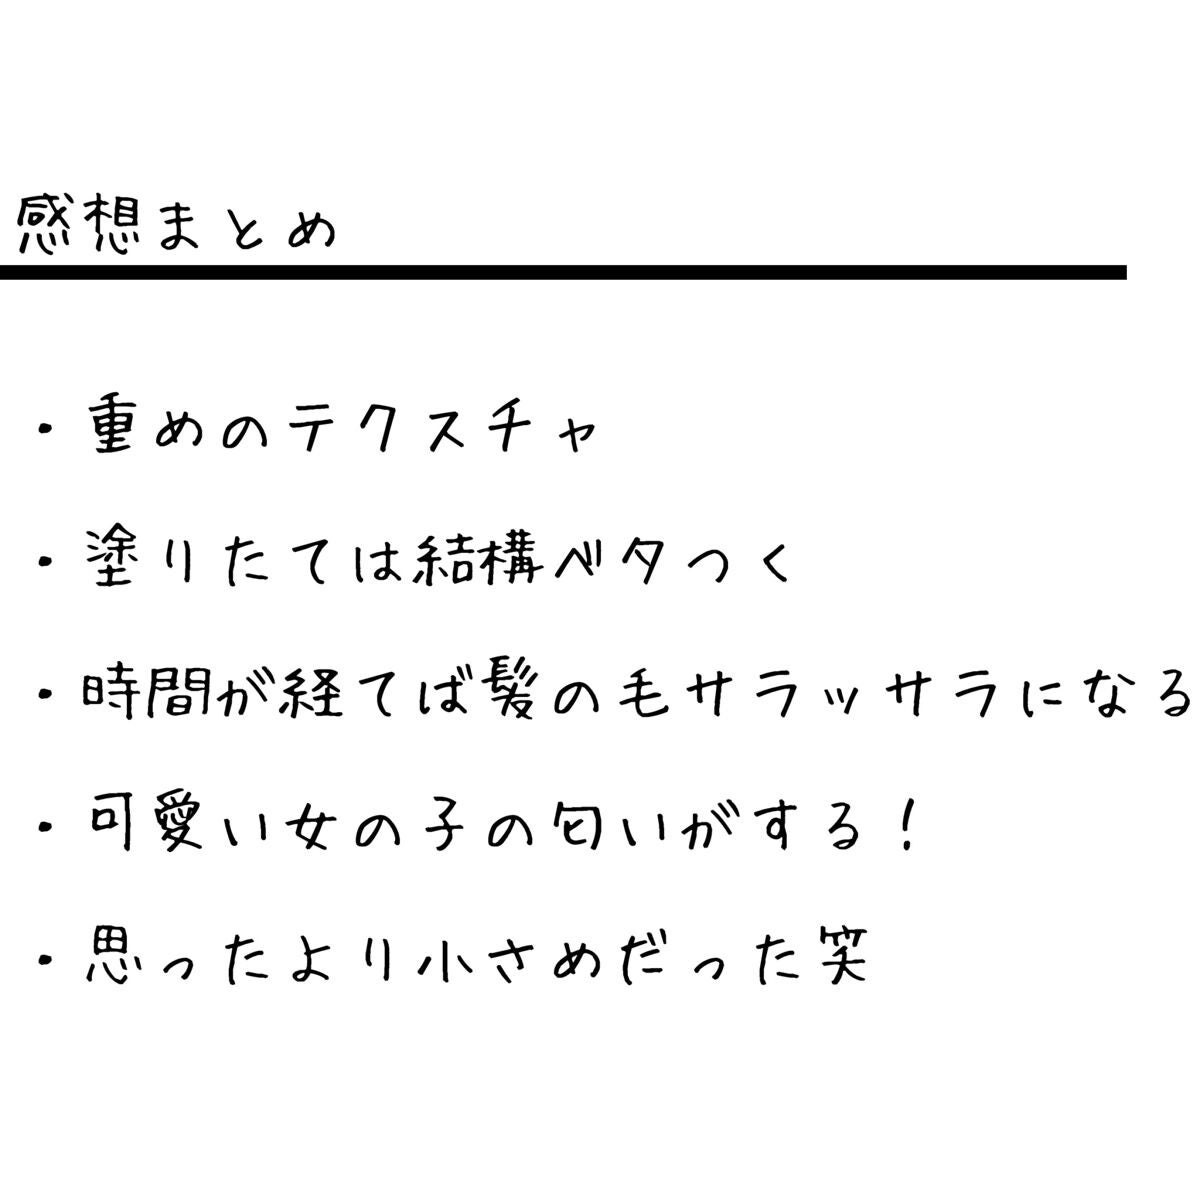 感想まとめ
・重めのテクスチャ
・塗りたては結構ベタつく
・時間が経てば髪の毛サラッサラになる
・可愛い女の子の匂いがする！
・思ったより小さめだった笑